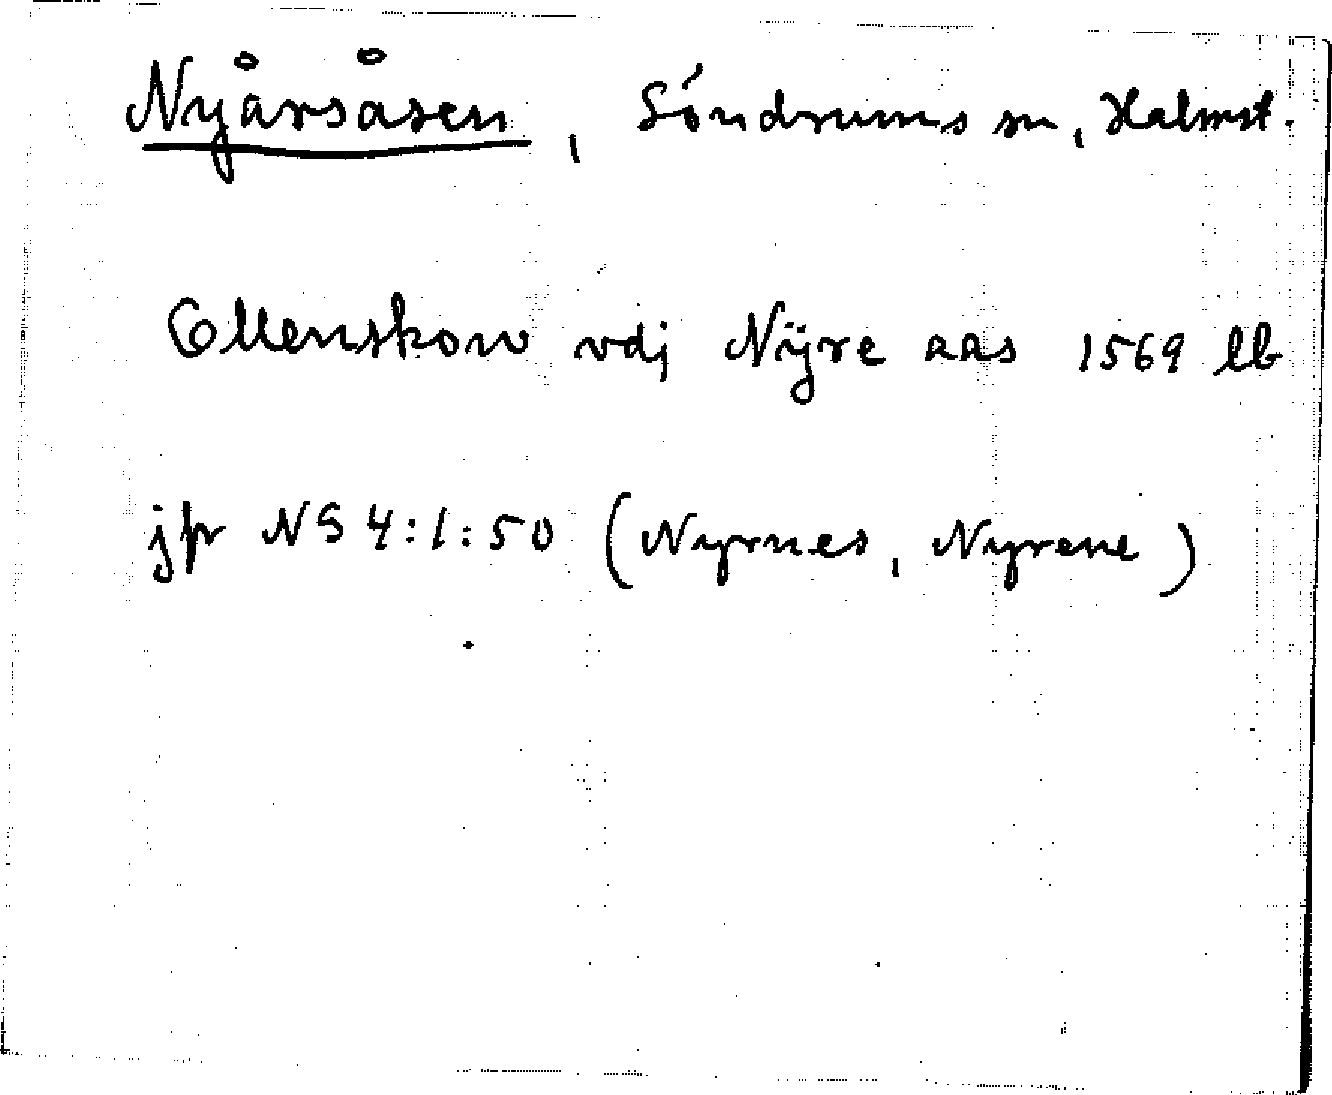 Nyårsåsen, Söndrums sn, Halmst.
Ellenskow vdj Nÿre aas 1569 lb
jfr NG 4:1:50 (Nyrnes, Nyrene)